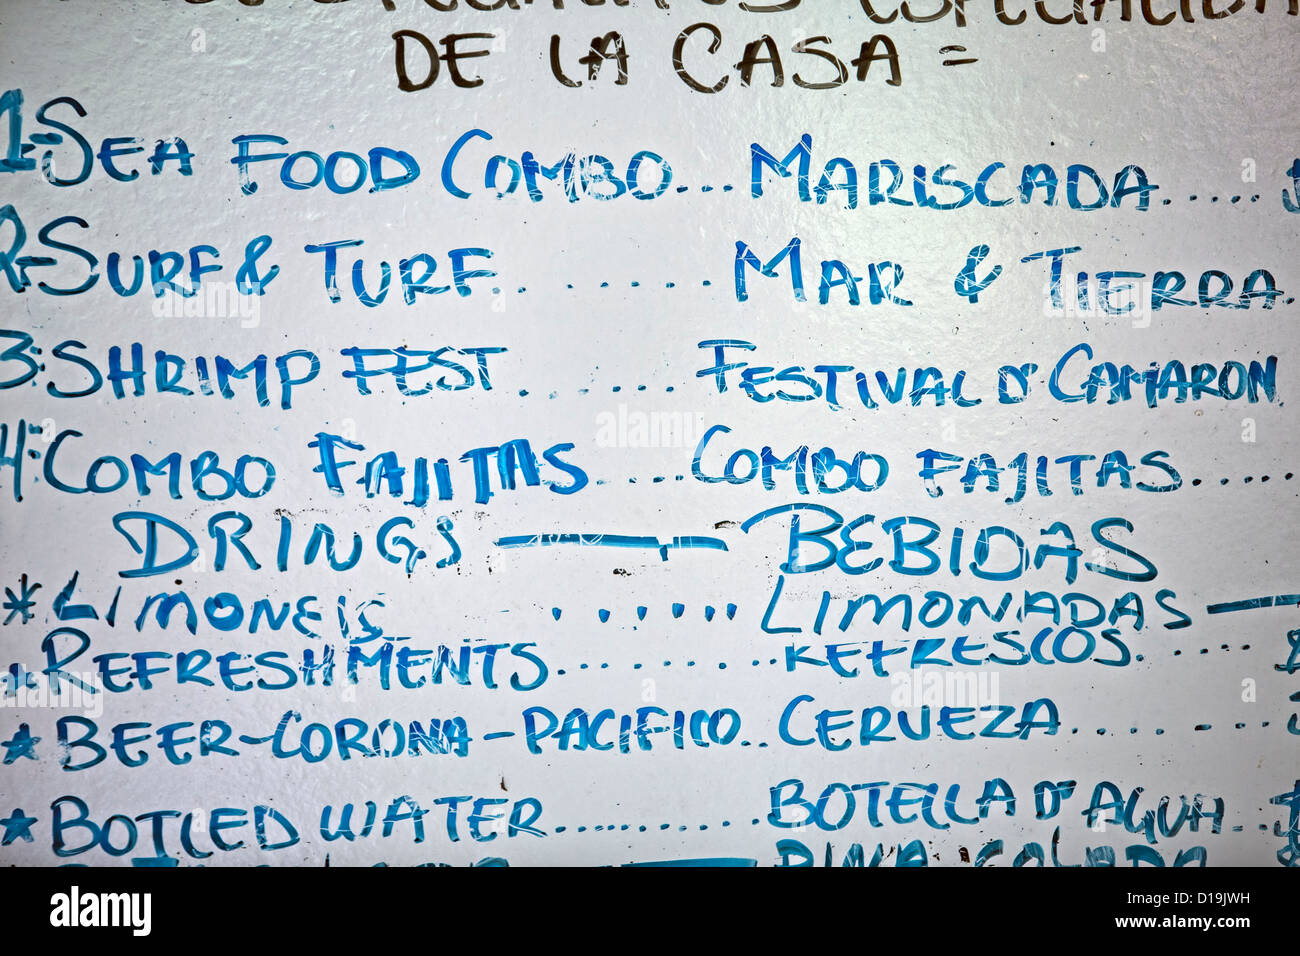 ESPECIALIDA
DE LA CASA =
1-SEA FOOD COMBO... MARISCADA......
2-SURF & TURF. ........ MAR & TIERRA.
3:SHRIMP FEST....... FESTIVAL D' CAMARON
4:COMBO FAJITAS...... COMBO FAJITAS.......
DRINGS — BEBIDAS
* LIMONEIS ...... LIMONADAS —
* REFRESHMENTS.......... REFRESCOS......
* BEER-CORONA-PACIFICO.. CERVEZA..........
* BOTLED WATER.......... BOTELLA D' AGUA...
alamy
Image ID: D19JWH
www.alamy.com